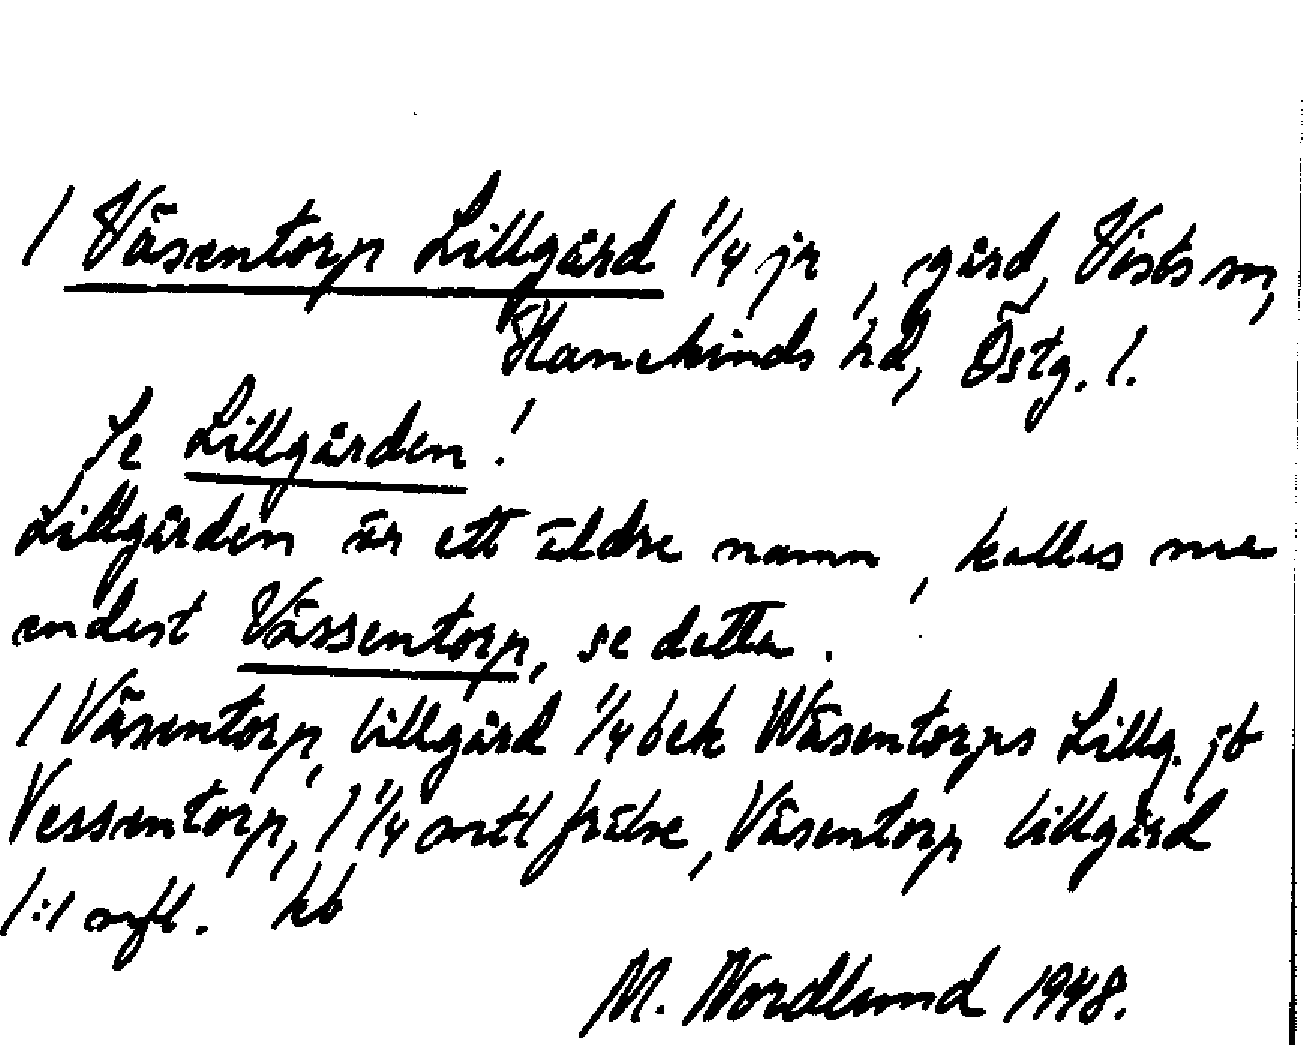 1 Väsentorp Lillgård 1/4 jr, gård, Vists sn,
Hanekinds hd, Östg. l.
Se Lillgården!
Lillgården är ett äldre namn, kallas nu
endast Vässentorp, se detta.
1 Väsentorp, lillgård 1/4 bek Wäsentorps Lillg. jb
Vessentorp, 1 1/4 mtl frälse, Väsentorp lillgård
1:1 kb
M. Nordlund 1948.